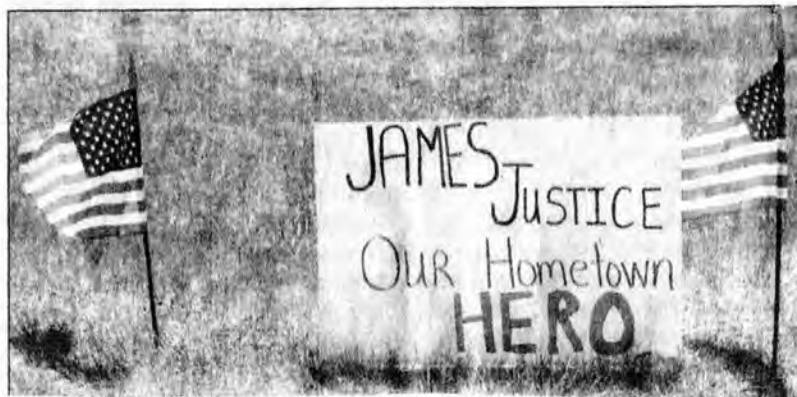 JAMES
JUSTICE
OUR Hometown
HERO